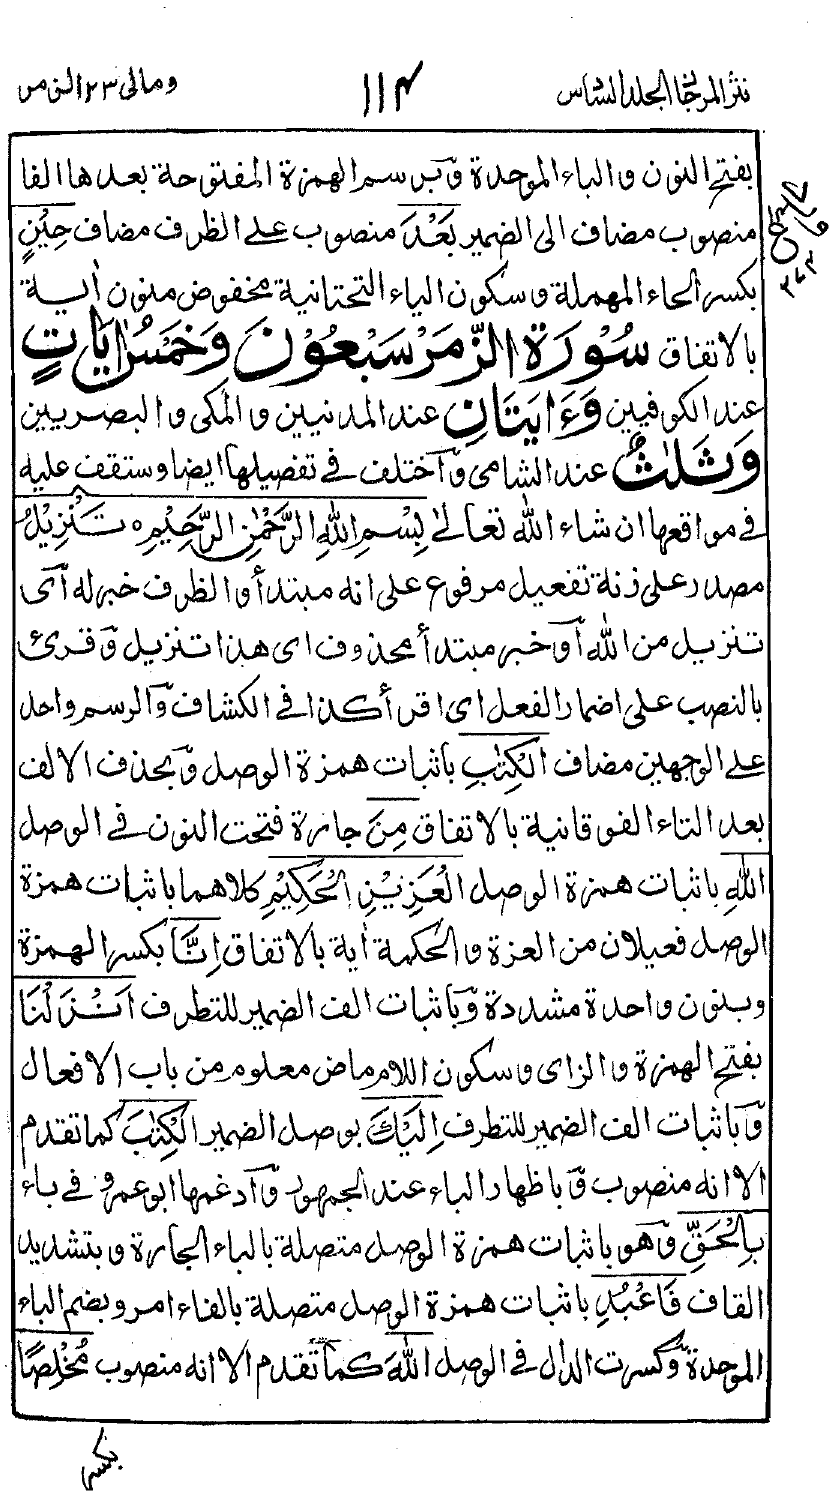 نثر المرجان الجلد السادس ١١٤ ومالى ٢٣ الزمر
بفتح النون والباء الموحدة وّبرسم الهمزة المفتوحة بعدها الفا
منصوب مضاف الى الضمير بَعْدَ منصوب على الظرف مضاف حِيْنٍ
بكسر الحاء المهملة وسكون الياء التحتانية مخفوض منون اٰية
بالاتفاق سُوْرَةُ الزُّمَرِ سَبْعُوْنَ وَخَمْسُ اٰيَاتٍ
عند الكوفيين وَءَايَتَانِ عند المدنيين والمكى والبصريين
وَثَلٰثٌ عند الشامى وّاختلف فى تفصيلها ايضا وستقف عليه
فى مواقعها ان شاء الله تعالىٰ بِسْمِ اللهِ الرَّحْمٰنِ الرَّحِيْمِ ٥ تَنْزِيْلُ
مصدر على زنة تفعيل مرفوع على انه مبتدأ والظرف خبر له اّى
تنزيل من الله اّو خبر مبتدأ محذوف اى هذا تنزيل وّقرئ
بالنصب على اضمار الفعل اى اقرأ كذا فى الكشاف وّالرسم واحد
على الوجهين مضاف الْكِتٰبِ باثبات همزة الوصل وّبحذف الالف
بعد التاء الفوقانية بالاتفاق مِنَ جارة فتحت النون فى الوصل
اللهِ باثبات همزة الوصل الْعَزِيْزِ الْحَكِيْمِ كلاهما باثبات همزة
الوصل فعيلان من العزة والحكمة اٰية بالاتفاق اِنَّا بكسر الهمزة
وبنون واحدة مشددة وّباثبات الف الضمير للتطرف اَنْزَلْنَا
بفتح الهمزة والزاى وسكون اللام ماض معلوم من باب الافعال
وّباثبات الف الضمير للتطرف اِلَيْكَ بوصل الضمير الْكِتٰبَ كما تقدم
الا انه منصوب وّباظهار الباء عند الجمهور وّادغمها ابوعمرو فى باء
بِالْحَقِّ وّهو باثبات همزة الوصل متصلة بالباء الجارة وبتشديد
القاف فَاعْبُدِ باثبات همزة الوصل متصلة بالفاء امر وبضم الباء
الموحدة وّكسرت الدال فى الوصل اللهَ كما تقدم الا انه منصوب مُخْلِصًا
بكسر